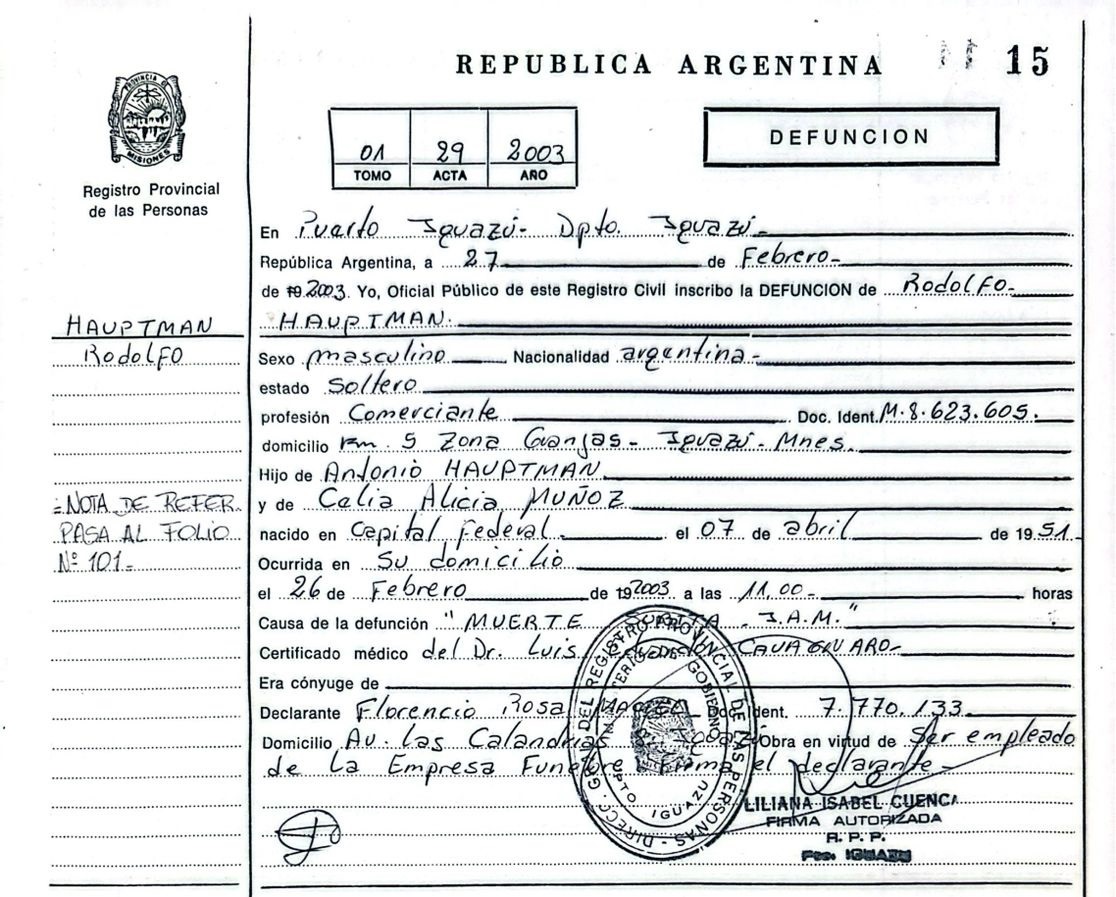 REPUBLICA ARGENTINA
15
PROVINCIA D
MISIONES
Registro Provincial
de las Personas
01 29 2003
TOMO ACTA AÑO
DEFUNCION
En Puerto Iguazú- Dpto. Iguazú-
República Argentina, a 27 de Febrero-
de 2003. Yo, Oficial Público de este Registro Civil inscribo la DEFUNCION de Rodolfo-
HAUPTMAN.
HAUPTMAN
Rodolfo
Sexo masculino Nacionalidad argentina-
estado Soltero
profesión Comerciante Doc. Ident. M.8.623.605.
domicilio Km. 5 Zona Granjas- Iguazú- Mnes.
Hijo de Antonio HAUPTMAN
y de Celia Alicia MUÑOZ
=NOTA DE REFER.
PASA AL FOLIO
Nº 101-
nacido en Capital Federal el 07 de abril de 1951
Ocurrida en Su domicilio
el 26 de Febrero de 192003 a las 11,00- horas
Causa de la defunción "MUERTE SUBITA - I.A.M."
Certificado médico del Dr. Luis
Era cónyuge de
Declarante Florencio Rosa Doc. Ident. 7.770.133
Domicilio Av. las Calandrias Obra en virtud de Ser empleado
de La Empresa Funebre firma el declarante-
DIRECC. GRAL DEL REGISTRO PROVINCIAL DE LAS PERSONAS
MINISTERIO DE GOBIERNO
DPTO. IGUAZU
LILIANA ISABEL CUENCA
FIRMA AUTORIZADA
R. P. P.
IGUAZU